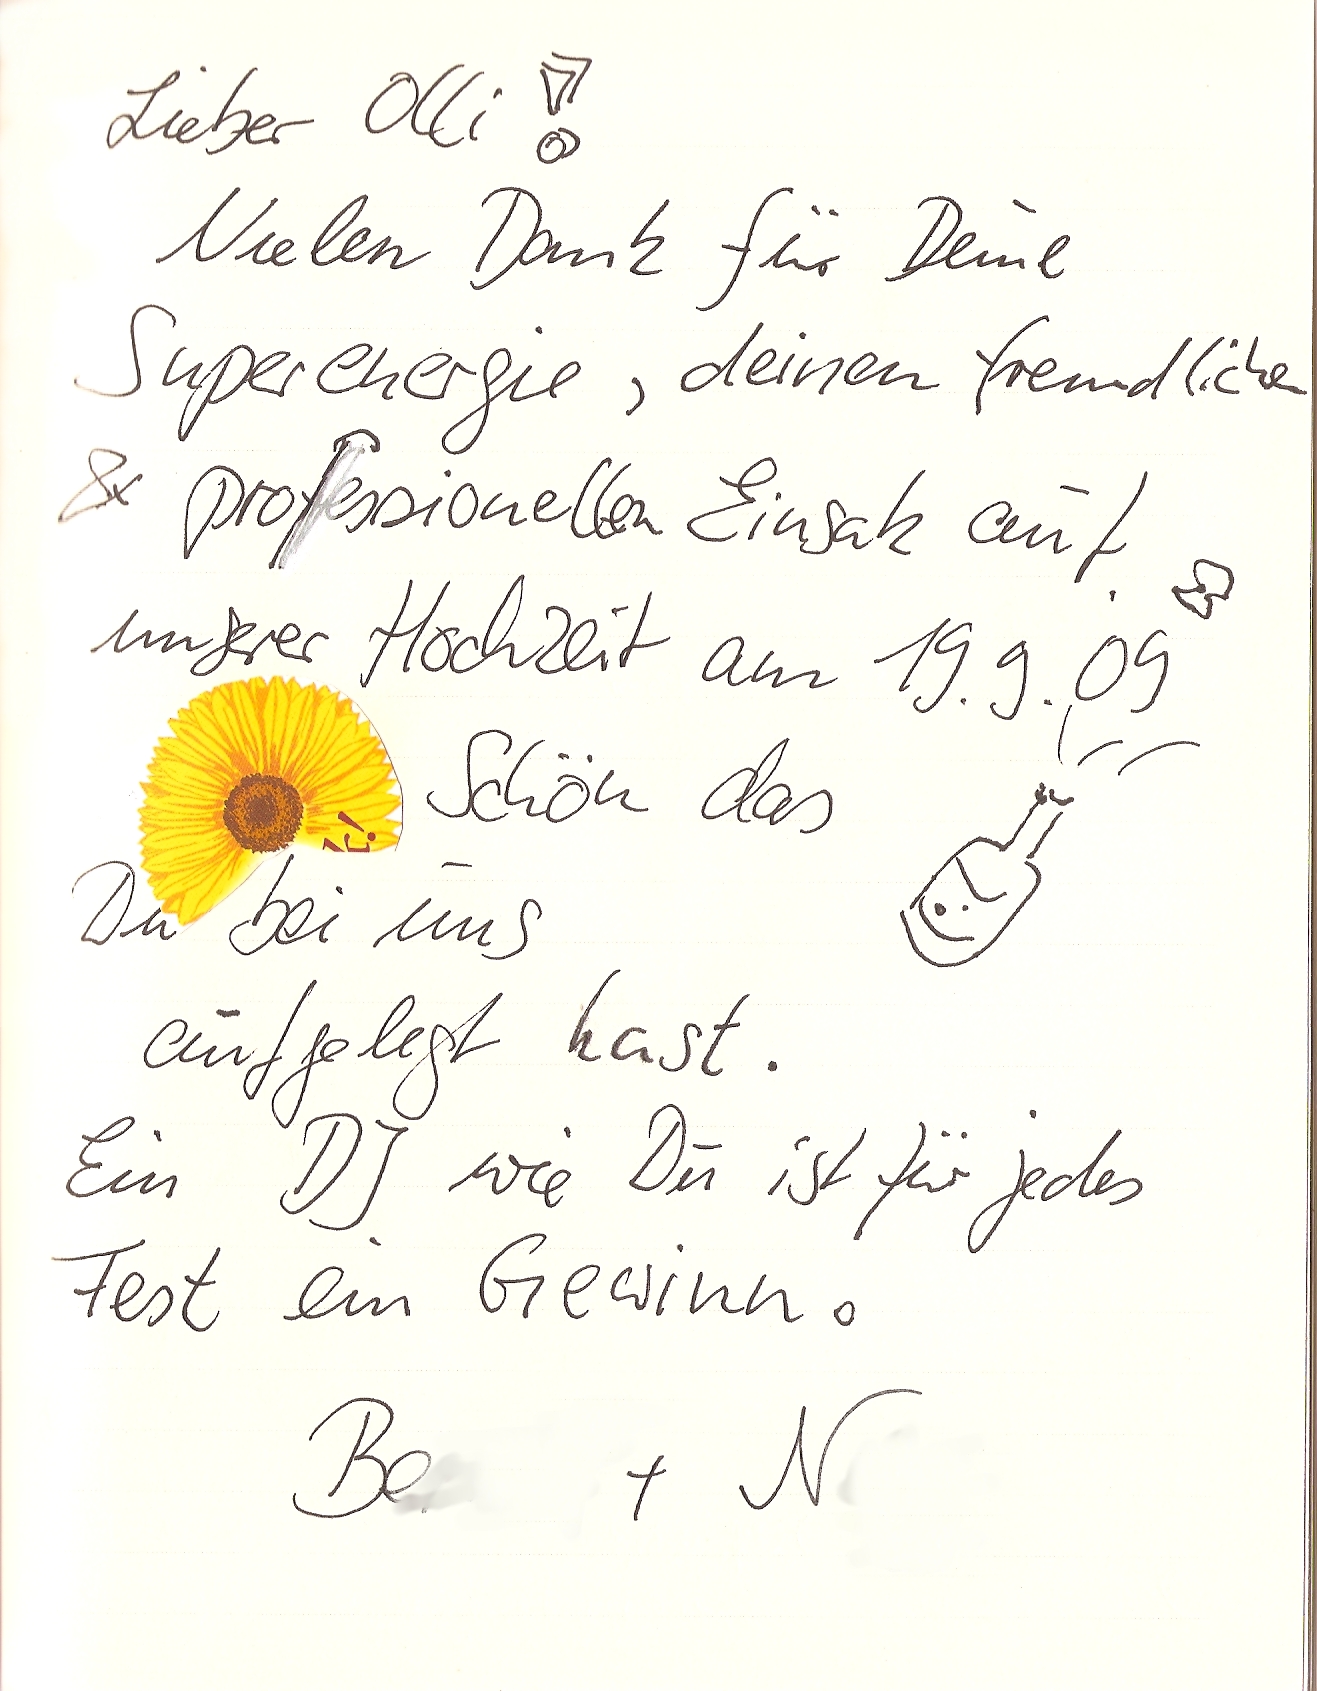 Lieber Olli!
Vielen Dank für Deine
Superenergie, deinen freundlichen
& professionellen Einsatz auf
unserer Hochzeit am 19.9.09
Schön das
Du bei uns
aufgelegt hast.
Ein DJ wie Du ist für jedes
Fest ein Gewinn.
Be + N